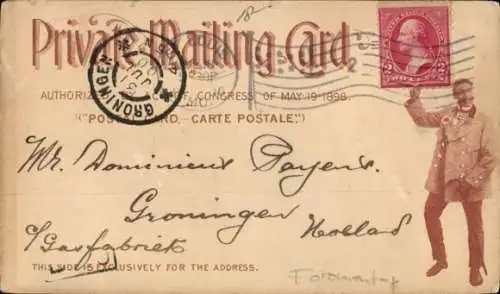 Private Mailing Card
AUTHORIZED CONGRESS OF MAY 19-1898.
("POST CARD. CARTE POSTALE.")
GRONINGEN
Mr. Dominicus Reyers.
Groningen
Holland
Gasfabriek
THIS SIDE IS EXCLUSIVELY FOR THE ADDRESS.